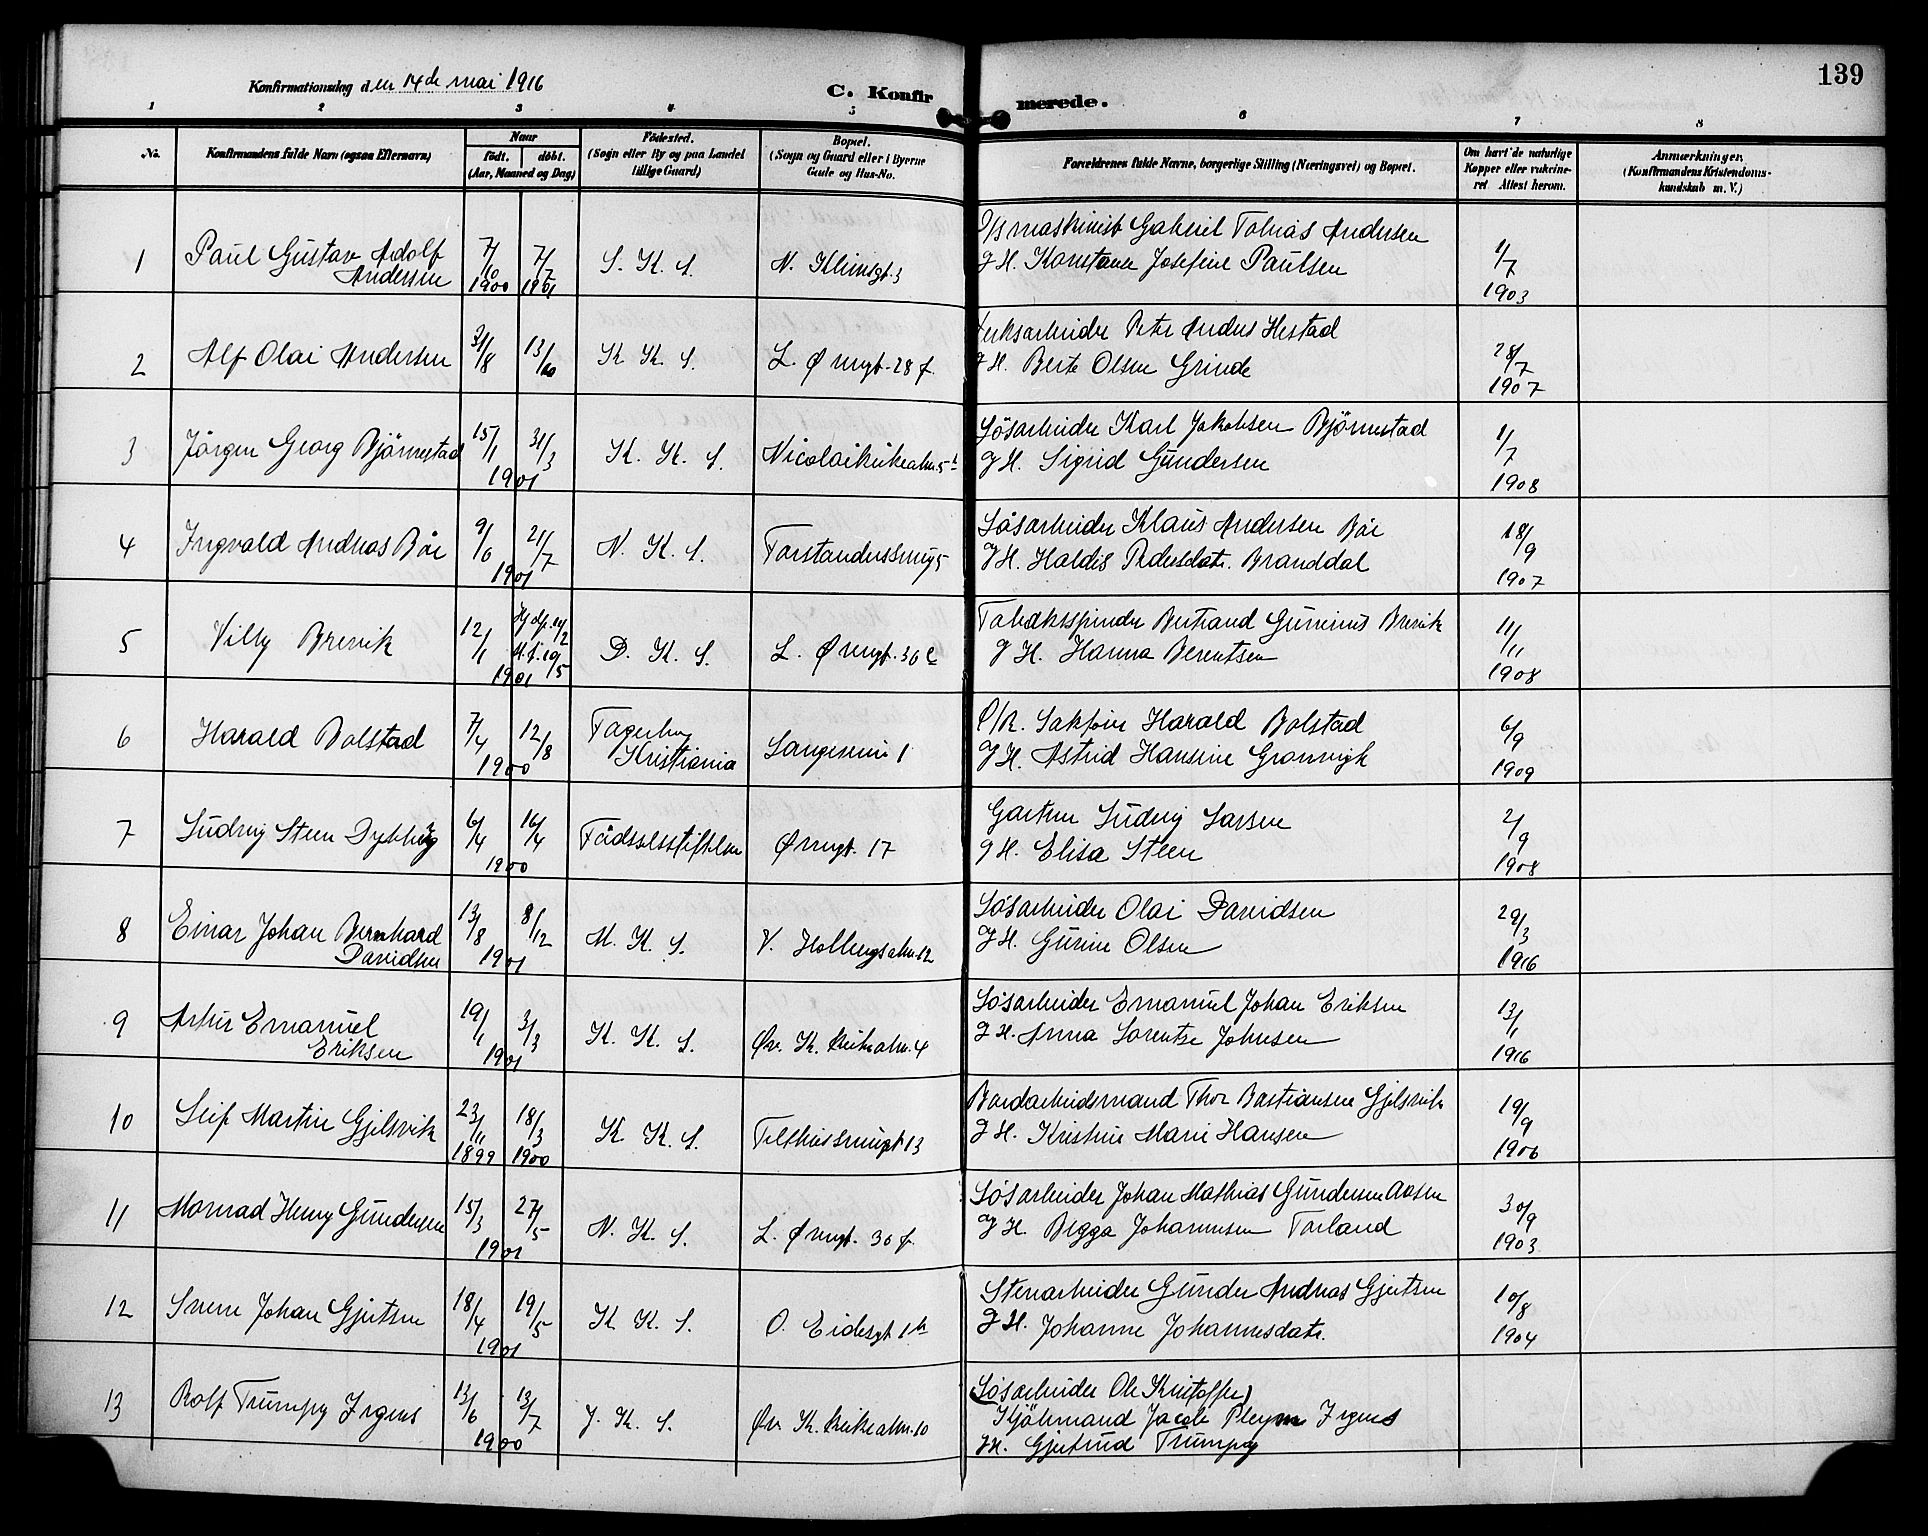 Konfirmationsdag den 14de mai 1916
C. Konfirmerede.
139
1 2 3 4 5 6 7 8
No.
Konfirmandens fulde Navn (ogsaa Efternavn)
Naar
födt. döbt.
(Aar, Maaned og Dag)
Födested.
(Sogn eller By og paa Landet
tillige Gaard)
Bopæl.
(Sogn og Gaard eller i Byerne
Gade og Hus-No.
Forældrenes fulde Navne, borgerlige Stilling (Næringsvei) og Bopæl.
Om havt de naturlige
Kopper eller vakcine-
ret Attest herom.
Anmærkninger.
(Konfirmandens Kristendoms-
kundskab m. V.)
1 Paul Gustav Adolf
Andersen
7/10 1900
7/7 1901
S. K. S.
N. Klimsgt. 3
D/S maskinist Gabriel Tobias Andersen
g H. Konstance Josefine Paulsen
1/7 1903
2 Alf Olai Andersen
31/8 13/10
K K. S.
L. Ø regt. 28 f.
Peter Andres Hestad
g H. Berte Olsen Grinde
28/7 1907
3 Jörgen Georg Björnestad
15/1 31/3 1901
K. K. S.
Nicolaikirkealm. 5
Lösarbeider Karl Jakobsen Björnestad
g H. Sigrid Gundersen
1/7 1908
4 Ingvald Andreas Böe
9/6 21/7 1901
N. K. S.
Forstandersmug 5
Lösarbeider Klaus Andersen Böe
g H. Haldis Pedersdatr. Branddal
18/9 1907
5 Villy Brevik
12/1 Hj dp. 24/2
St. f. 19/5
1901
D. K. S.
L. Ø regt. 36 c
Tobaksspinder Bertrand Gunerius Brevik
g H. Hanna Berentsen
11/11 1908
6 Harald Bolstad
7/4 12/8 1900
Fagerborg
Kristiania
Langeveien 1
O/R. Sakförer Harald Bolstad
g H. Astrid Hansine Gronvigk
6/9 1909
7 Ludvig Steen Dybhug
6/4 16/4 1900
Födselsstiftelsen
Ø regt. 17
Gartner Ludvig Larsen
g H. Elisa Steen
2/9 1908
8 Einar Johan Bernhard
Davidsen
13/8 8/12 1901
M. K. S.
V. Hollengsalm. 12
Lösarbeider Olai Davidsen
g H. Gurine Olsen
29/3 1916
9 Artur Emanuel
Eriksen
19/1 3/3 1901
K. K. S.
Øv. K. kirkealm. 4
Lösarbeider Emanuel Johan Eriksen
g H. Anna Lorentze Johnsen
13/1 1916
10 Leif Martin Gjelsvik
23/11 1899
18/3 1900
K K. S.
Telthussmugt 13
Bordarbeidermand Thor Bastiansen Gjelsvik
g H. Kristine Marie Hansen
19/9 1906
11 Monrad Henry Gundersen
15/3 27/5 1901
N. K. S.
L. Ø regt. 36 f.
Lösarbeider Johan Mathias Gundersen Aasen
g H. Begga Johannesen Torland
30/9 1903
12 Sverre Johan Gjertsen
18/4 19/5 1901
K K. S.
O. Eidesgt 1 b
Stenarbeider Gunder Andreas Gjertsen
g H. Johanne Johannesdatr.
10/8 1904
13 Rolf Trumpy Irgens
13/6 13/7 1900
J. K. S.
Øv. K. kirkealm. 10
(Lösarbeider Ole Kristoffer)
Kjöbmand Jacob Pleym Irgens
g H. Gjertrud Trumpy